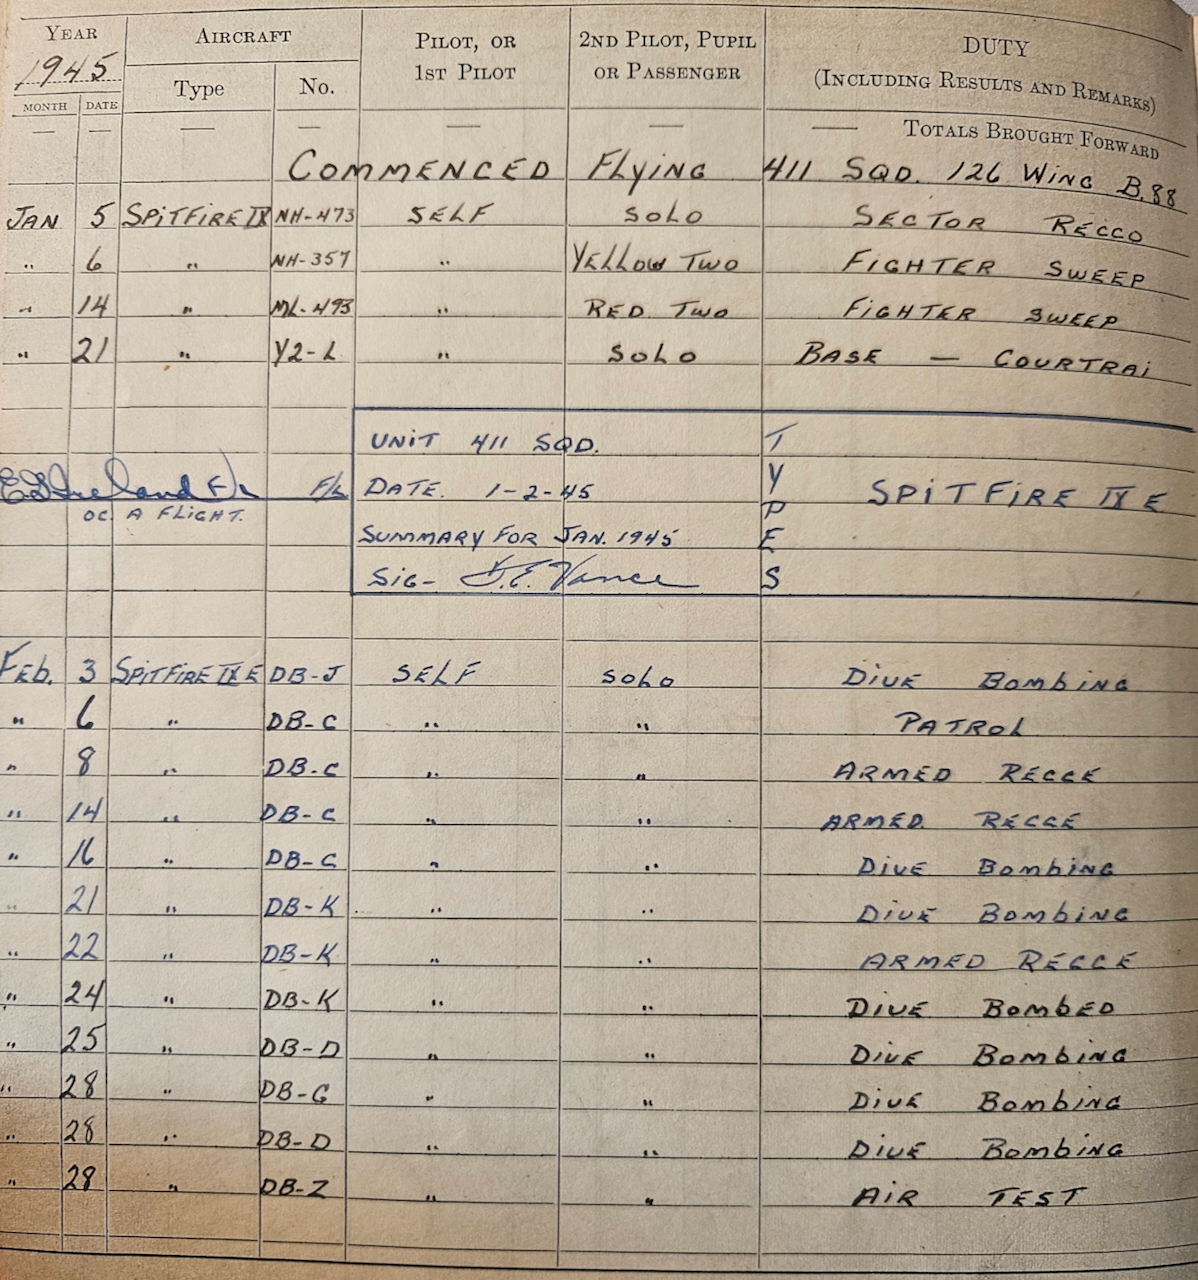 YEAR AIRCRAFT PILOT, OR 2ND PILOT, PUPIL DUTY
1945 Type No. 1ST PILOT OR PASSENGER (INCLUDING RESULTS AND REMARKS)
MONTH DATE
— — — — — — — TOTALS BROUGHT FORWARD
COMMENCED FLYING 411 SQD. 126 WING B.88
JAN 5 SPITFIRE IX NH-473 SELF SOLO SECTOR RECCO
" 6 " NH-357 " YELLOW TWO FIGHTER SWEEP
" 14 " ML-493 " RED TWO FIGHTER SWEEP
" 21 " Y2-L " SOLO BASE — COURTRAI
UNIT 411 SQD.
F/L DATE. 1-2-45
OC. A FLIGHT.
SUMMARY FOR JAN. 1945
SIG- J.E. Vance
TYPES SPITFIRE IX E
FEB. 3 SPITFIRE IX E DB-J SELF SOLO DIVE BOMBING
" 6 " DB-C " " PATROL
" 8 " DB-C " " ARMED RECCE
" 14 " DB-C " " ARMED. RECCE
" 16 " DB-C " " DIVE BOMBING
" 21 " DB-K " " DIVE BOMBING
" 22 " DB-K " " ARMED RECCE
" 24 " DB-K " " DIVE BOMBED
" 25 " DB-D " " DIVE BOMBING
" 28 " DB-G " " DIVE BOMBING
" 28 " DB-D " " DIVE BOMBING
" 28 " DB-Z " " AIR TEST